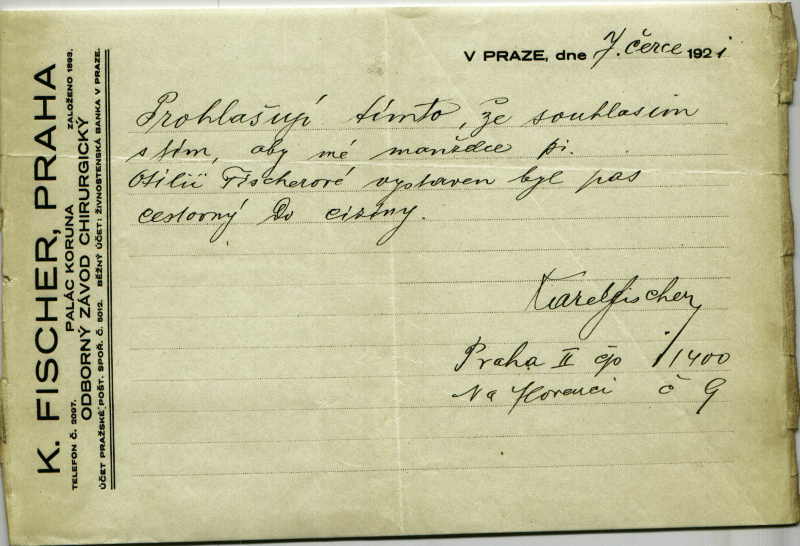 K. FISCHER, PRAHA
TELEFON Č. 2097. PALÁC KORUNA ZALOŽENO 1893.
ODBORNÝ ZÁVOD CHIRURGICKÝ
ÚČET PRAŽSKÉ POŠT. SPOŘ. Č. 5012. BĚŽNÝ ÚČET: ŽIVNOSTENSKÁ BANKA V PRAZE.
V PRAZE, dne 7. červce 1921
Prohlašuji tímto, že souhlasím
s tím, aby mé manželce pí.
Otilii Fischerové vystaven byl pas
cestovný do ciziny.
Karel Fischer
Praha II čp 1400
Na Florenci č 9